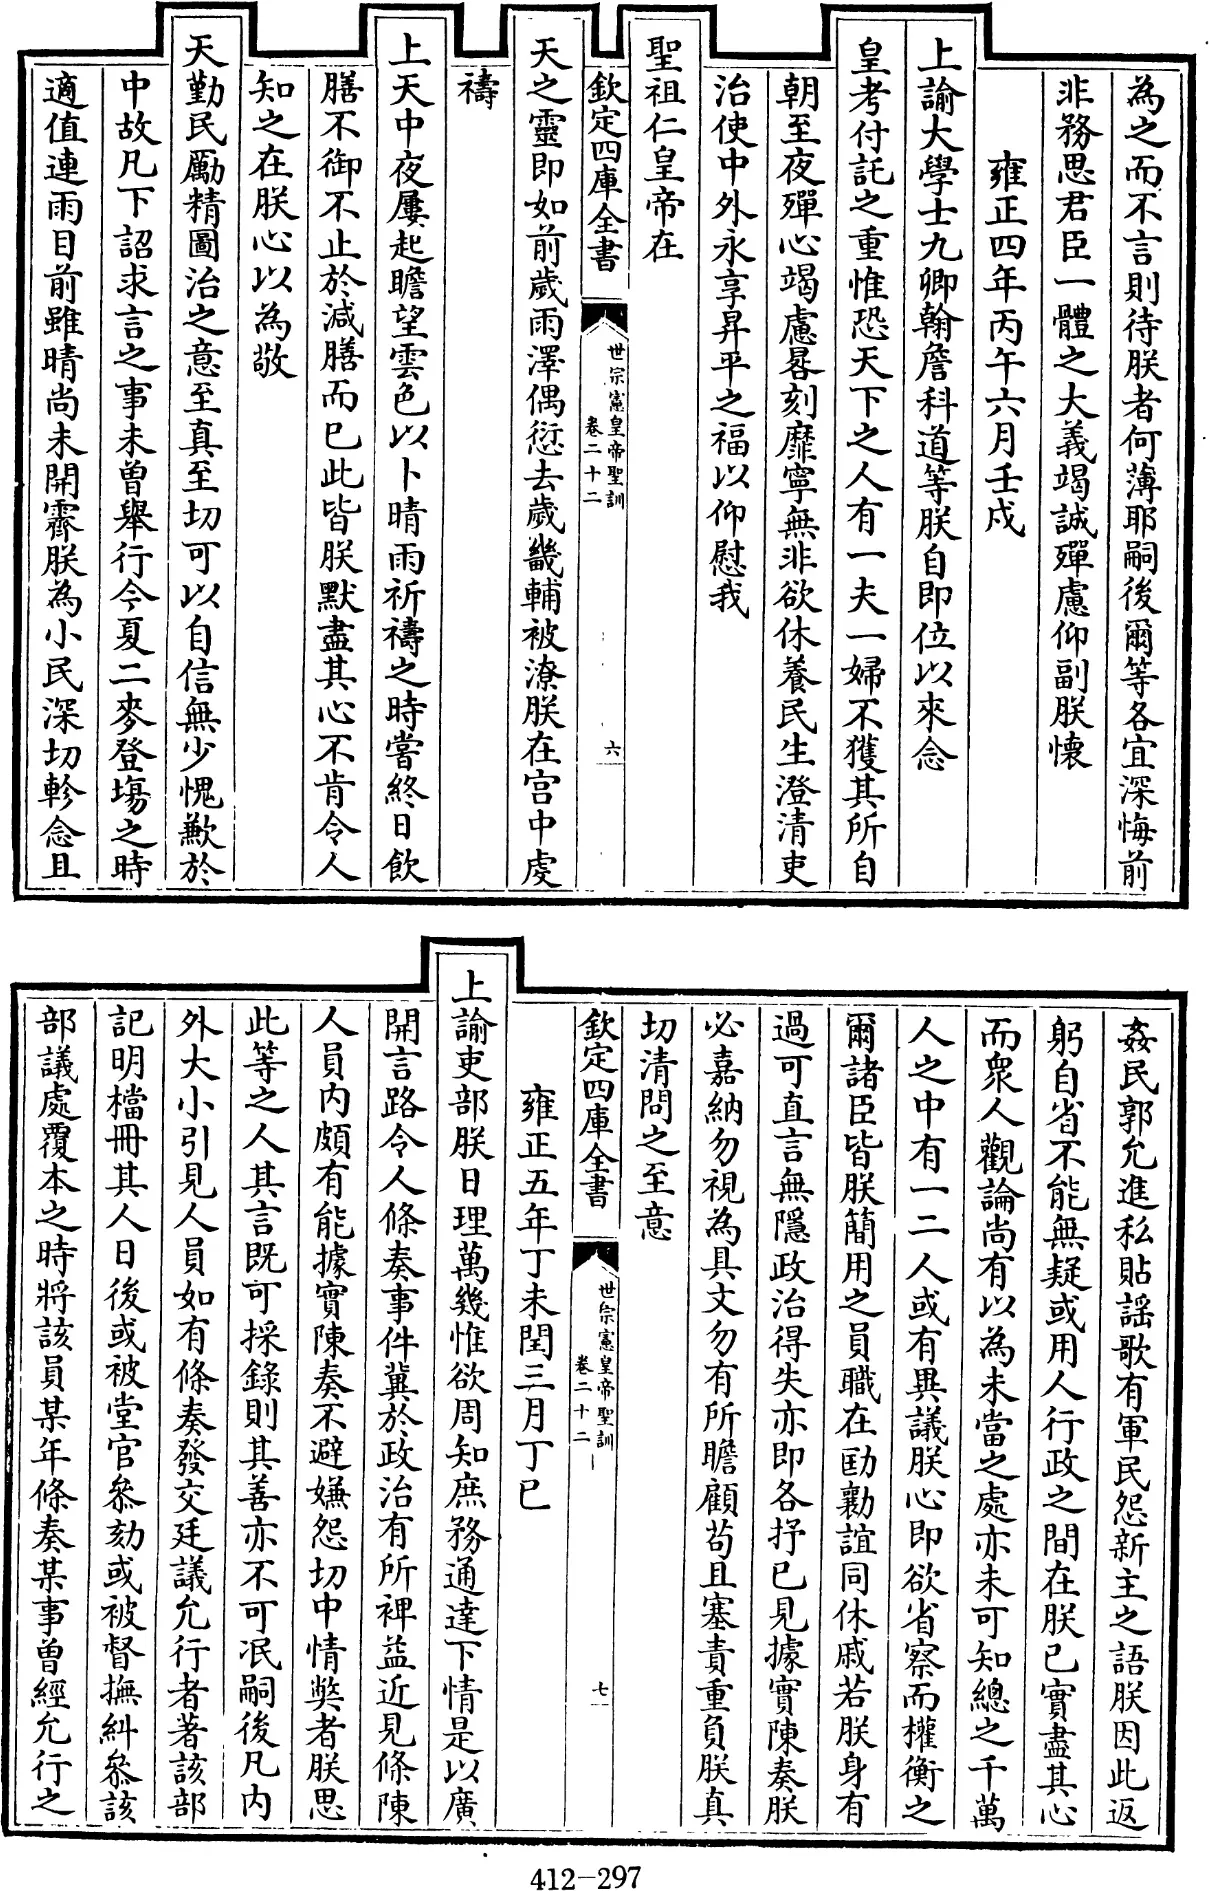 為之而不言則待朕者何薄耶嗣後爾等各宜深悔前
非務思君臣一體之大義竭誠殫慮仰副朕懐
雍正四年丙午六月壬戍
上諭大學士九卿翰詹科道等朕自即位以來念
皇考付託之重惟恐天下之人有一夫一婦不獲其所自
朝至夜殫心竭慮晷刻靡寧無非欲休養民生澄清吏
治使中外永享昇平之福以仰慰我
聖祖仁皇帝在
欽定四庫全書
世宗憲皇帝聖訓
卷二十二
六
天之靈即如前歲雨澤偶愆去歲畿輔被潦朕在宫中虔
禱
上天中夜屢起瞻望雲色以卜晴雨祈禱之時嘗終日飲
膳不御不止於減膳而已此皆朕默盡其心不肯令人
知之在朕心以為敬
天勤民勵精圖治之意至真至切可以自信無少愧歉於
中故凡下詔求言之事未曽舉行今夏二麥登塲之時
適值連雨目前雖晴尚未開霽朕為小民深切軫念且
姦民郭允進私貼謡歌有軍民怨新主之語朕因此返
躬自省不能無疑或用人行政之間在朕已實盡其心
而衆人觀論尚有以為未當之處亦未可知總之千萬
人之中有一二人或有異議朕心即欲省察而權衡之
爾諸臣皆朕簡用之員職在勖勷誼同休戚若朕身有
過可直言無隱政治得失亦即各抒已見據實陳奏朕
必嘉納勿視為具文勿有所瞻顧苟且塞責重負朕真
切清問之至意
欽定四庫全書
世宗憲皇帝聖訓
卷二十二
七
雍正五年丁未閏三月丁巳
上諭吏部朕日理萬幾惟欲周知庶務通達下情是以廣
開言路令人條奏事件冀於政治有所裨益近見條陳
人員内頗有能據實陳奏不避嫌怨切中情獘者朕思
此等之人其言既可採錄則其善亦不可泯嗣後凡内
外大小引見人員如有條奏發交廷議允行者著該部
記明檔冊其人日後或被堂官叅劾或被督撫糾叅該
部議處覆本之時將該員某年條奏某事曽經允行之
412-297